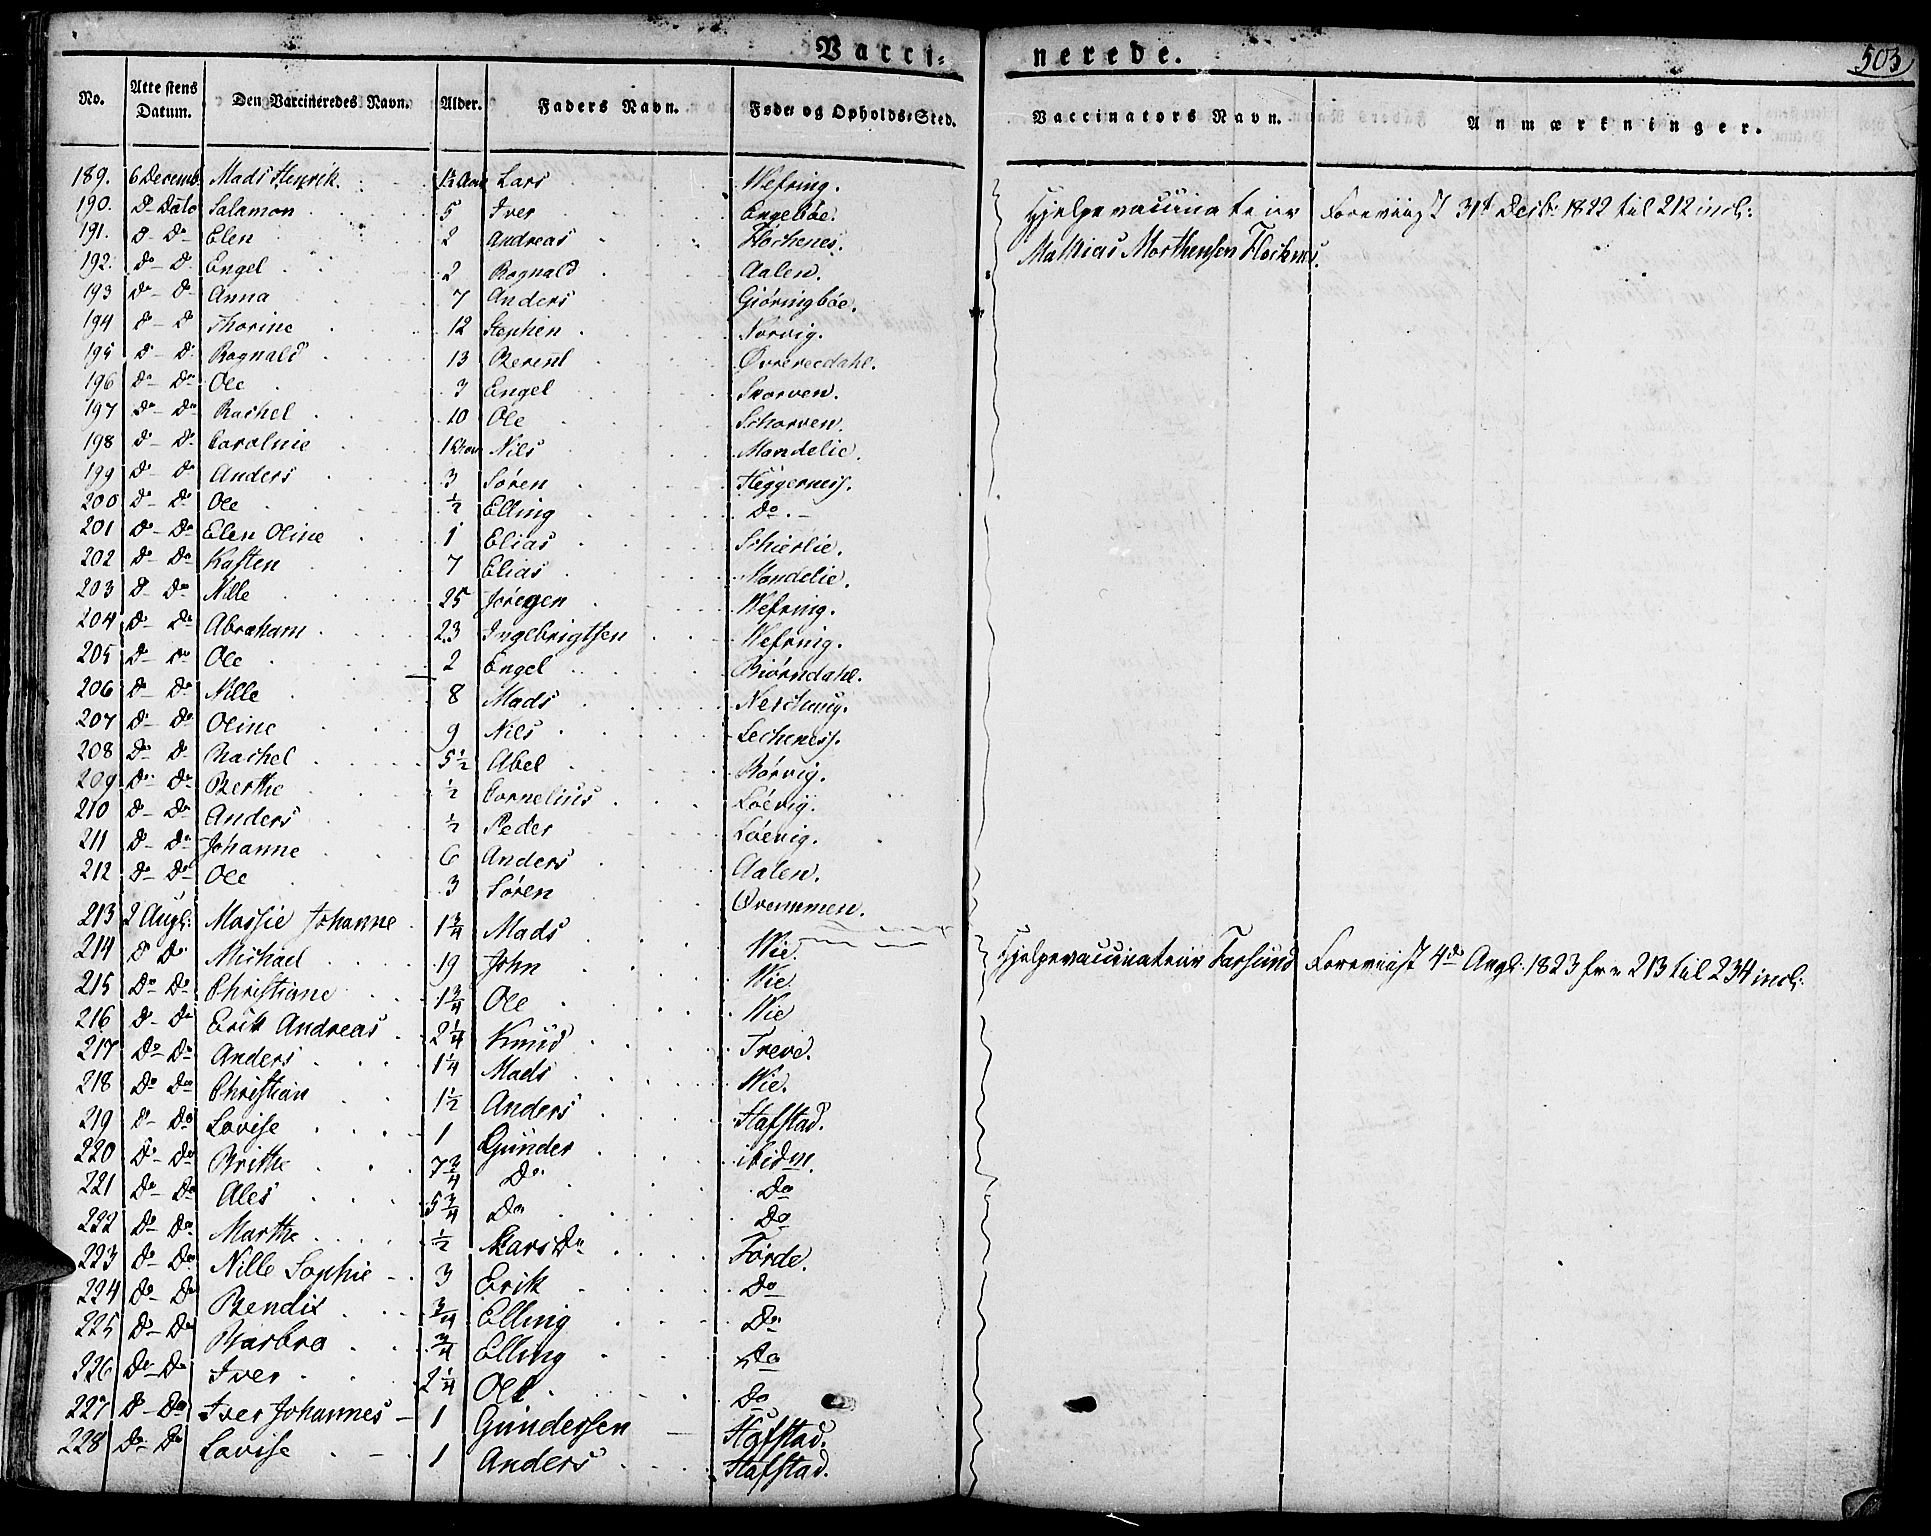 Vacci=
nerede.
503
No. Atte stens Datum. Den Vaccineredes Navn. Alder. Faders Navn. Føde= og Opholds=Sted. Vaccinators Navn. Anmærkninger.
189. 6 Decemb. Mads Henrik 1½ Lars Wefring.
190. Do Dato Salamon 5 Iver Engebøe.
191. Do Do Elen 2 Andreas Flochenes.
192. Do Do Engel 2 Rognald Aalen.
193 Do Do Anna 7 Anders Giøringbøe.
194 Do Do Thorine 12 Stephen Norvig.
195 Do Do Rognald 13 Berent
196 Do Do Ole 3 Engel Skorven.
197 Do Do Rachel 10 Ole Schorven.
198 Do Do Caroline Nils Mandelie.
199 Do Do Anders 3 Søren Heggerness.
200 Do Do Ole ½ Elling Do. –
201 Do Do Elen Oline 1 Elias Schierlie.
202 Do Do Kasten 7 Elias Mandelie.
203 Do Do Nille 25 Jørgen Wefring.
204 Do Do Abraham 23 Ingebrigtsen Wefring.
205 Do Do Ole 2 Engel Biørndahl.
206 Do Do Nille 8 Mads
207 Do Do Oline 9 Nils Lecheness.
208 Do Do Rachel 5½ Abel Rørvig.
209 Do Do Berthe ½ Cornelius Løevig.
210 Do Do Anders ½ Peder Løevig.
211 Do Do Johanne 6 Anders Aalen.
212 Do Do Ole 3 Søren Qvammen.
213 2 Augl: Massie Johanne 1¾ Mads Wie.
214 Do Do Michael 19 John Wie.
215 Do Do Christiane 1¾ Ole Wie
216 Do Do Erik Andreas 2¼ Knud Treve.
217 Do Do Anders 1¼ Mads Wie.
218 Do Do Christian 1½ Anders Hafstad.
219 Do Do Lovise 1 Gunder ibidm.
220 Do Do Brithe 7¾ Do Do
221 Do Do Ales 5¾ Do Do
222 Do Do Marthe ½ Førde.
223 Do Do Nille Sophie 3 Erik Do
224 Do Do Bendix ¾ Elling Do
225 Do Do Barbro ¾ Elling Do
226 Do Do Iver 2¼ Ole Do
227 Do Do Iver Johannes – 1 Gundersen Hafstad.
228 Do Do Lovise 1 Anders Hafstad.
Hjelpevaccinateur Foreviist 31t Decb: 1822 til 212 incl:
Mathias Morthensen Flochenes.
Hjelpevaccinateur Farsund Foreviist 4de Augl: 1823 fra 213 til 234 incl: